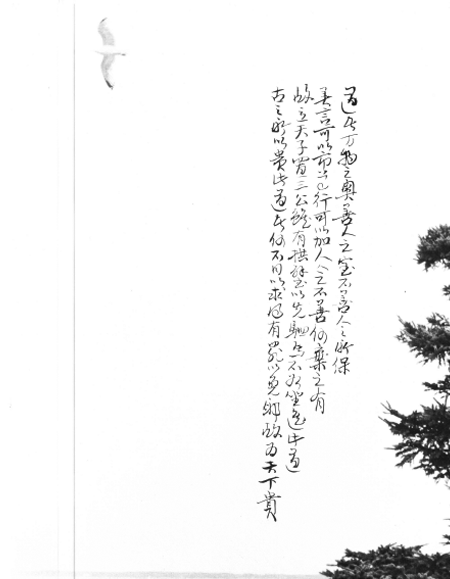 道者万物之奥善人之宝不善人之所保
美言可以市尊行可以加人人之不善何棄之有
故立天子置三公雖有拱璧以先駟馬不如坐進此道
古之所以貴此道者何不曰以求得有罪以免邪故為天下貴